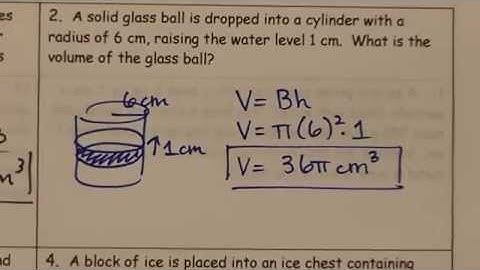 es
2. A solid glass ball is dropped into a cylinder with a
radius of 6 cm, raising the water level 1 cm. What is the
volume of the glass ball?
6cm
↑1cm
V= Bh
V= π(6)²·1
V= 36π cm³
m³
nd
4. A block of ice is placed into an ice chest containing